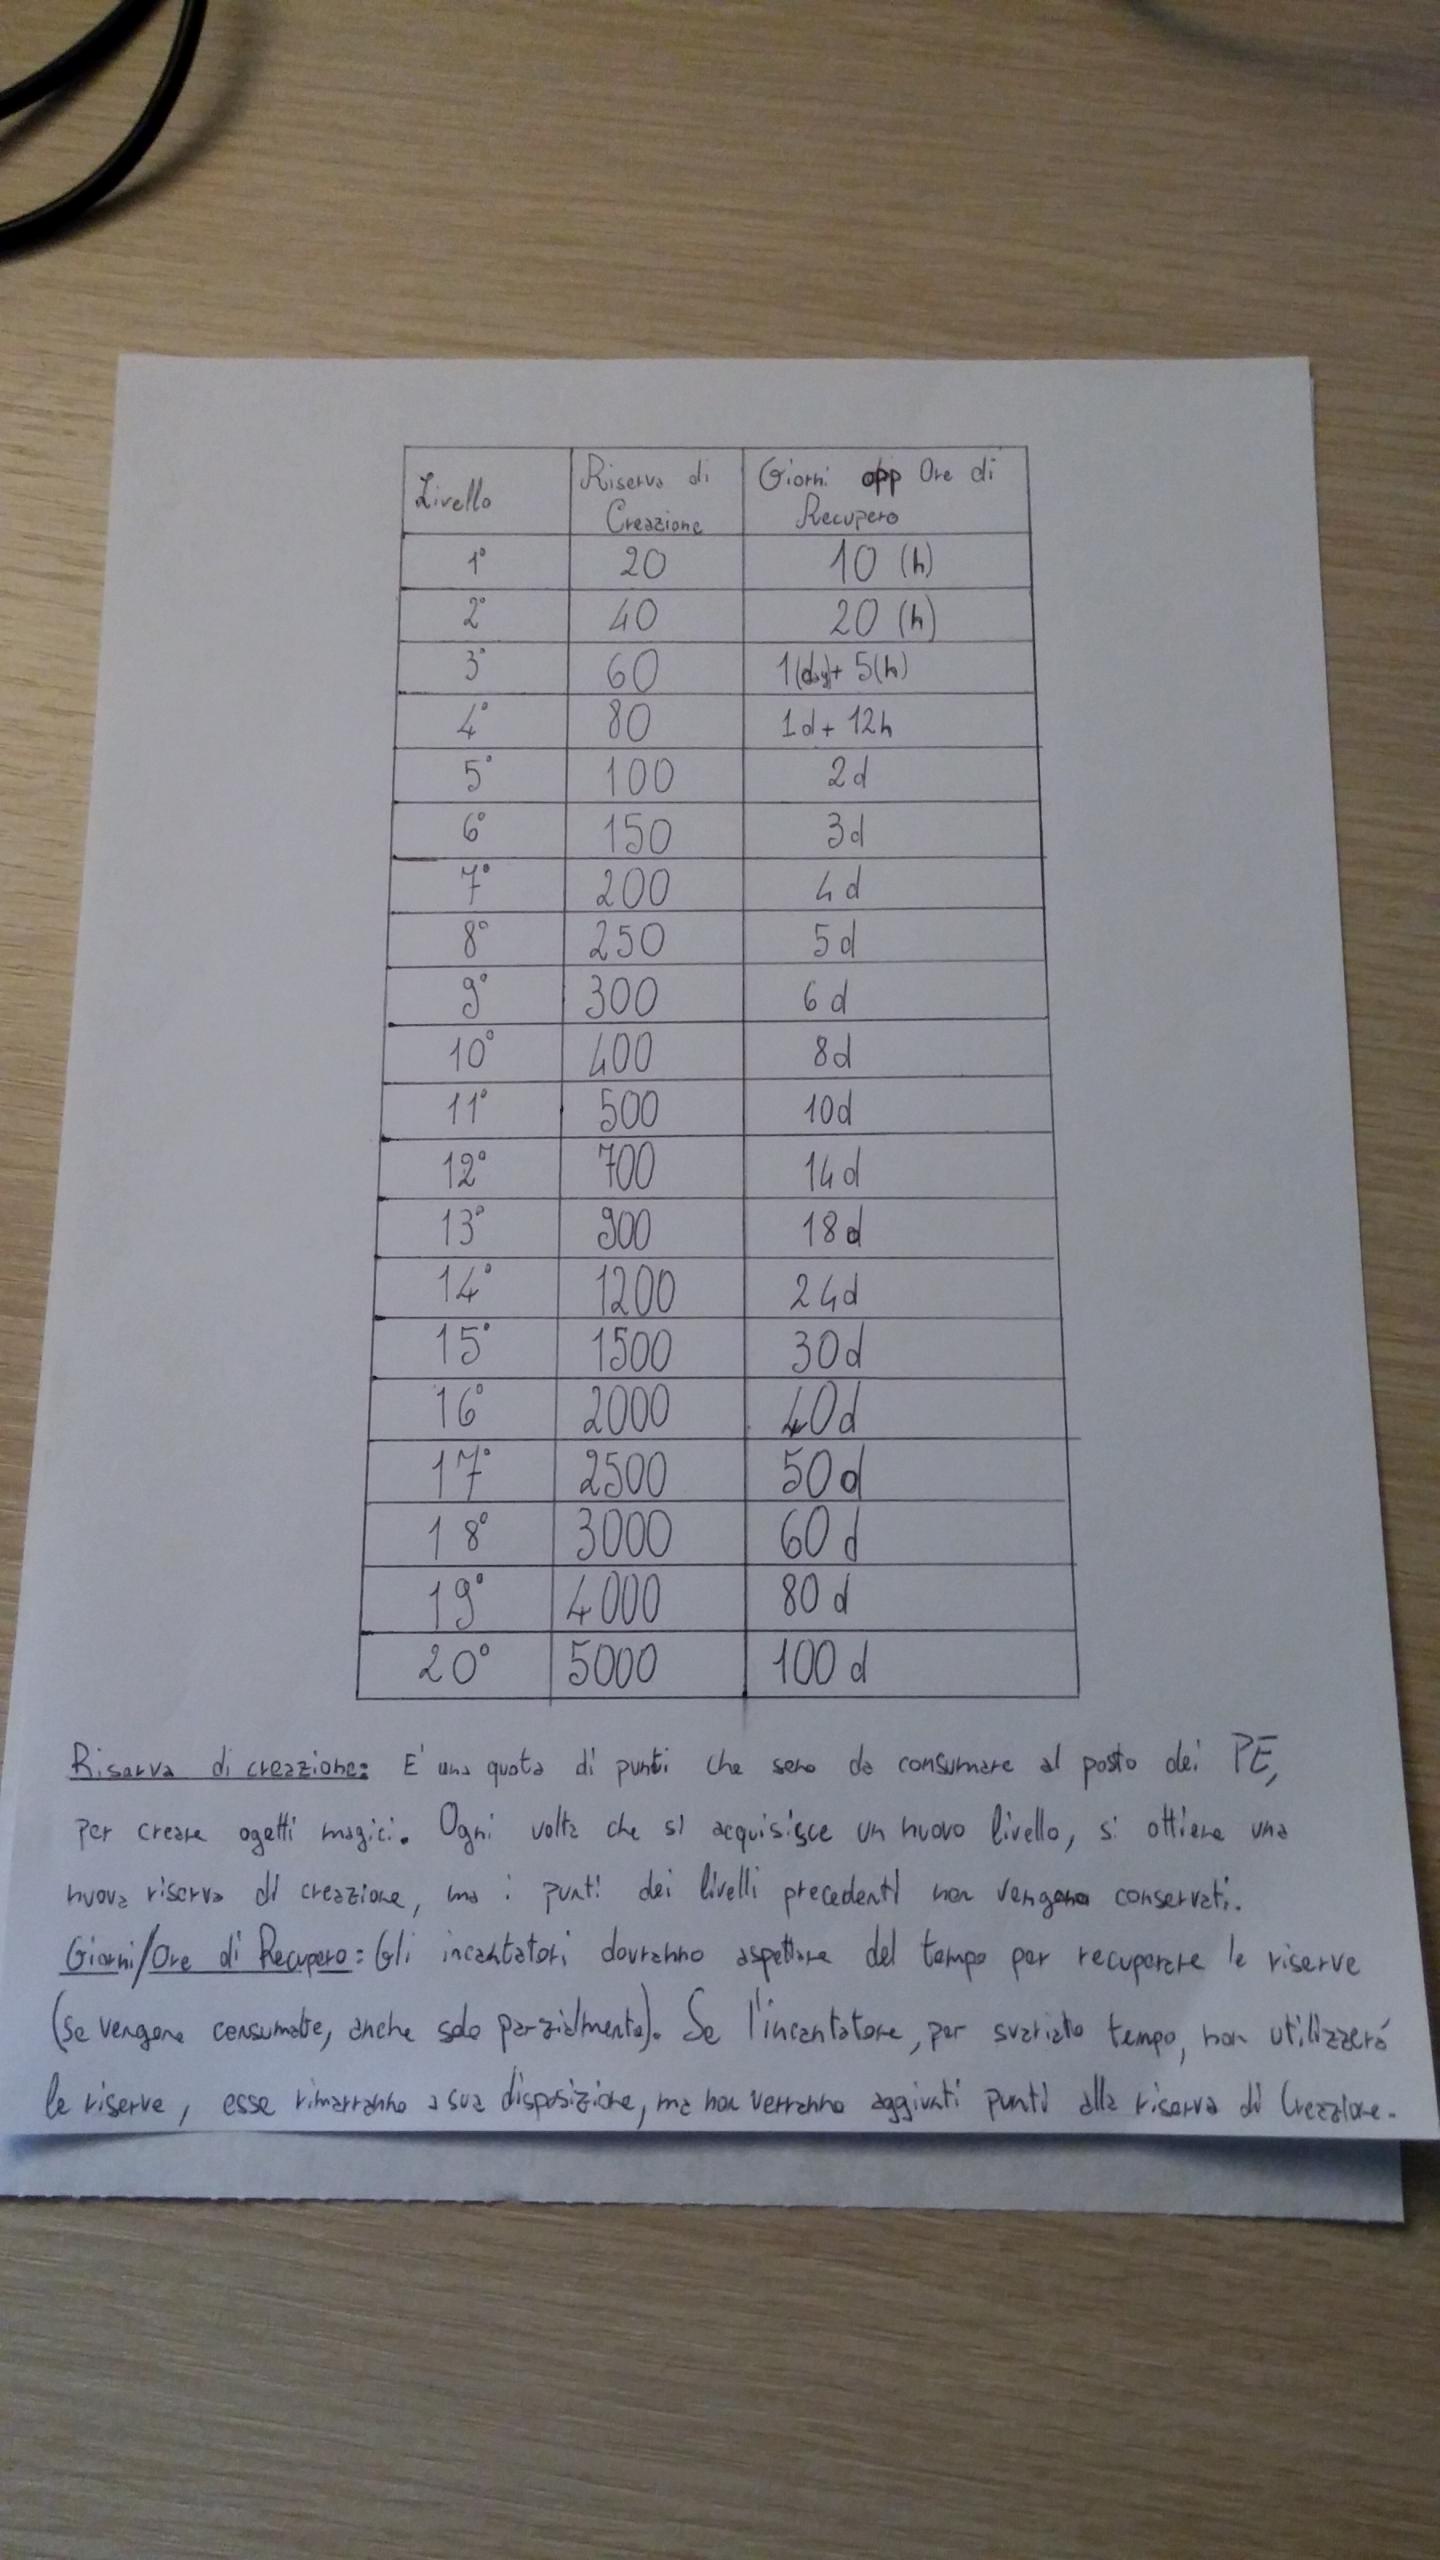 Livello Riserva di Creazione Giorni opp Ore di Recupero
1° 20 10 (h)
2° 40 20 (h)
3° 60 1(day)+ 5(h)
4° 80 1d + 12h
5° 100 2d
6° 150 3d
7° 200 4d
8° 250 5d
9° 300 6d
10° 400 8d
11° 500 10d
12° 700 14d
13° 900 18d
14° 1200 24d
15° 1500 30d
16° 2000 40d
17° 2500 50d
18° 3000 60d
19° 4000 80d
20° 5000 100d
Riserva di creazione: E' una quota di punti che sono da consumare al posto dei PE,
per creare ogetti magici. Ogni volta che si acquisisce un nuovo livello, si ottiene una
nuova riserva di creazione, ma i punti dei livelli precedenti non vengono conservati.
Giorni/Ore di Recupero: Gli incantatori dovranno aspettare del tempo per recuperare le riserve
(se vengono consumate, anche solo parzialmente). Se l'incantatore, per svariato tempo, non utilizzerá
le riserve, esse rimarranno a sua disposizione, ma non verranno aggiunti punti alla riserva di Creazione.